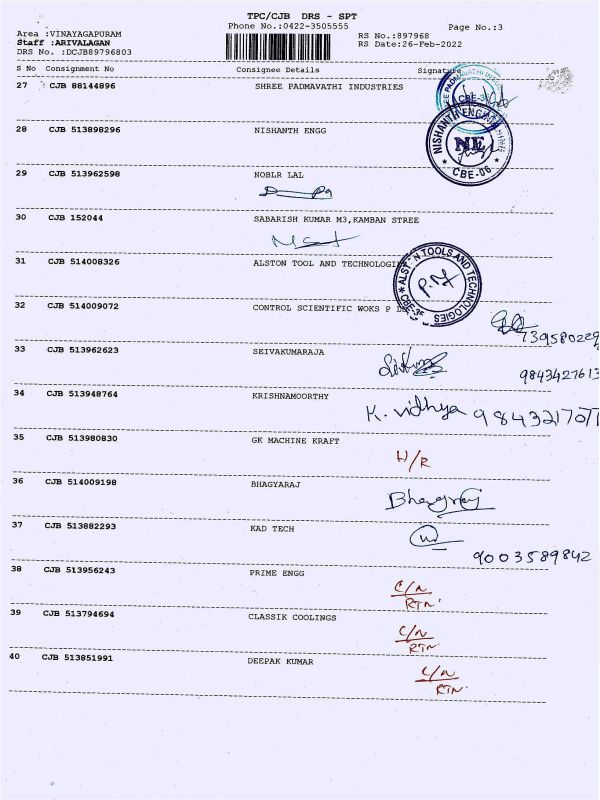 TPC/CJB DRS - SPT
Phone No.:0422-3505555
Page No.:3
Area :VINAYAGAPURAM
Staff :ARIVALAGAN
DRS No. :DCJB89796803
RS No.:897968
RS Date:26-Feb-2022
S No Consignment No Consignee Details Signature
27 CJB 88144896 SHREE PADMAVATHI INDUSTRIES
CBE-35
28 CJB 513898296 NISHANTH ENGG
NISHANTH ENGINEERING
NE
CBE-06
29 CJB 513962598 NOBLR LAL
30 CJB 152044 SABARISH KUMAR M3,KAMBAN STREE
31 CJB 514008326 ALSTON TOOL AND TECHNOLOGIE
ALSTON TOOLS AND TECHNOLOGIES
CBE-35
32 CJB 514009072 CONTROL SCIENTIFIC WOKS P LT
739580229
33 CJB 513962623 SEIVAKUMARAJA
9843427613
34 CJB 513948764 KRISHNAMOORTHY
K. Vidhya
35 CJB 513980830 GK MACHINE KRAFT
H/R
36 CJB 514009198 BHAGYARAJ
Bhagyraj
37 CJB 513882293 KAD TECH
9003589842
38 CJB 513956243 PRIME ENGG
C/N
RTN
39 CJB 513794694 CLASSIK COOLINGS
C/N
RTN
40 CJB 513851991 DEEPAK KUMAR
C/N
RTN